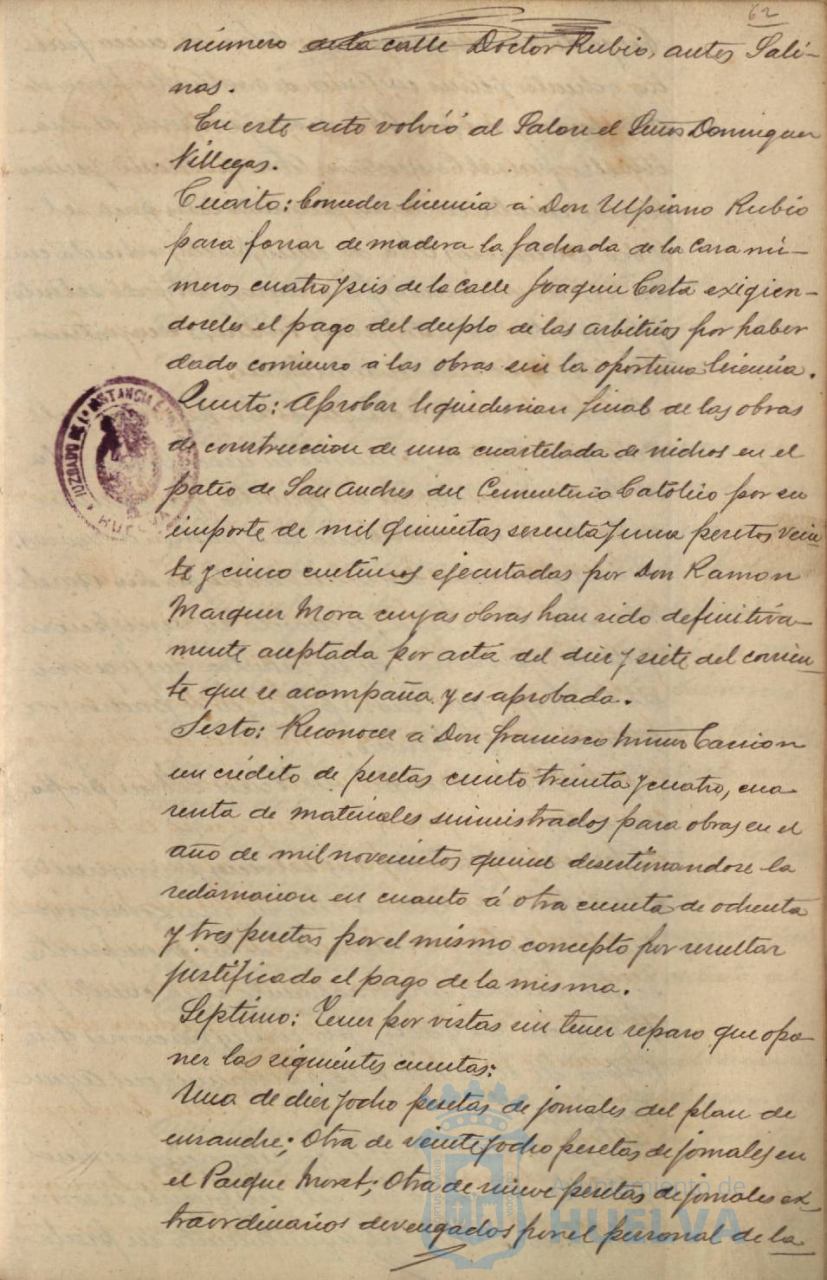 62
número de la calle Doctor Rubio, antes Sali-
nas.
En este acto volvió al Salon el Señor Dominguez
Villegas.
Cuarto: Conceder licencia á Don Ulpiano Rubio
para forrar de madera la fachada de la casa nú-
meros cuatro y seis de la calle Joaquin Costa exigien-
doseles el pago del duplo de las arbitrios por haber
dado comienzo á las obras sin la oportuna licencia.
Quinto: Aprobar liquidacion final de las obras
de construccion de una cuartelada de nichos en el
patio de San Andres del Cementerio Católico por su
importe de mil quinientas sesenta y una pesetas vein
te y cinco centimos ejecutadas por Don Ramon
Marquez Mora cuyas obras han sido definitiva-
mente aceptada por acta del diez y siete del corrien
te que se acompaña y es aprobada.
Sexto: Reconocer á Don Francisco Muñoz Carrion
un crédito de pesetas ciento treinta y cuatro, cua-
renta de materiales suministrados para obras en el
año de mil novecientos quince desestimandose la
reclamacion en cuanto á otra cuenta de ochenta
y tres pesetas por el mismo concepto por resultar
justificado el pago de la misma.
Septimo: Tener por vistas sin tener reparo que opo-
ner las siguientes cuentas:
Una de diez y ocho pesetas de jornales del plan de
ensanche; Otra de veinte y ocho pesetas de jornales en
el Parque Moret; Otra de nueve pesetas de jornales ex-
traordinarios devengados por el personal de la
JUZGADO DE 1ª INSTANCIA
HUELVA
Ayuntamiento de
HUELVA